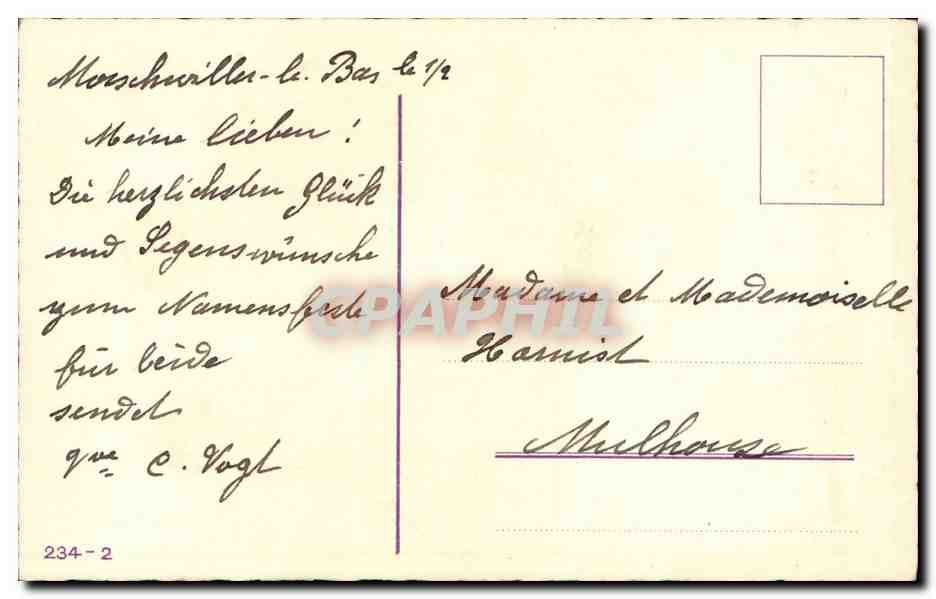 Morschwiller-le-Bas le 1/2
Meine lieben!
Die herzlichsten Glück
und Segenswünsche
zum Namensfeste
für beide
sendet
Vve C. Vogt
Madame et Mademoiselle
Harnist
Mulhouse
234-2
CPAPHIL